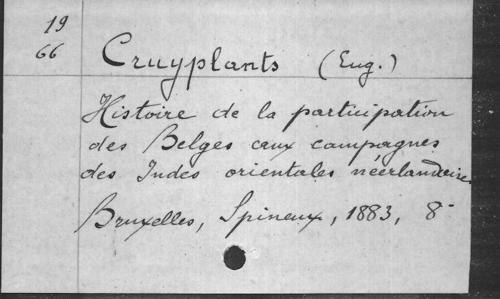 19
66
Cruyplants (Eug.)
Histoire de la participation
des Belges aux campagnes
des Indes orientales néerlandaises
Bruxelles, Spineux, 1883, 8°